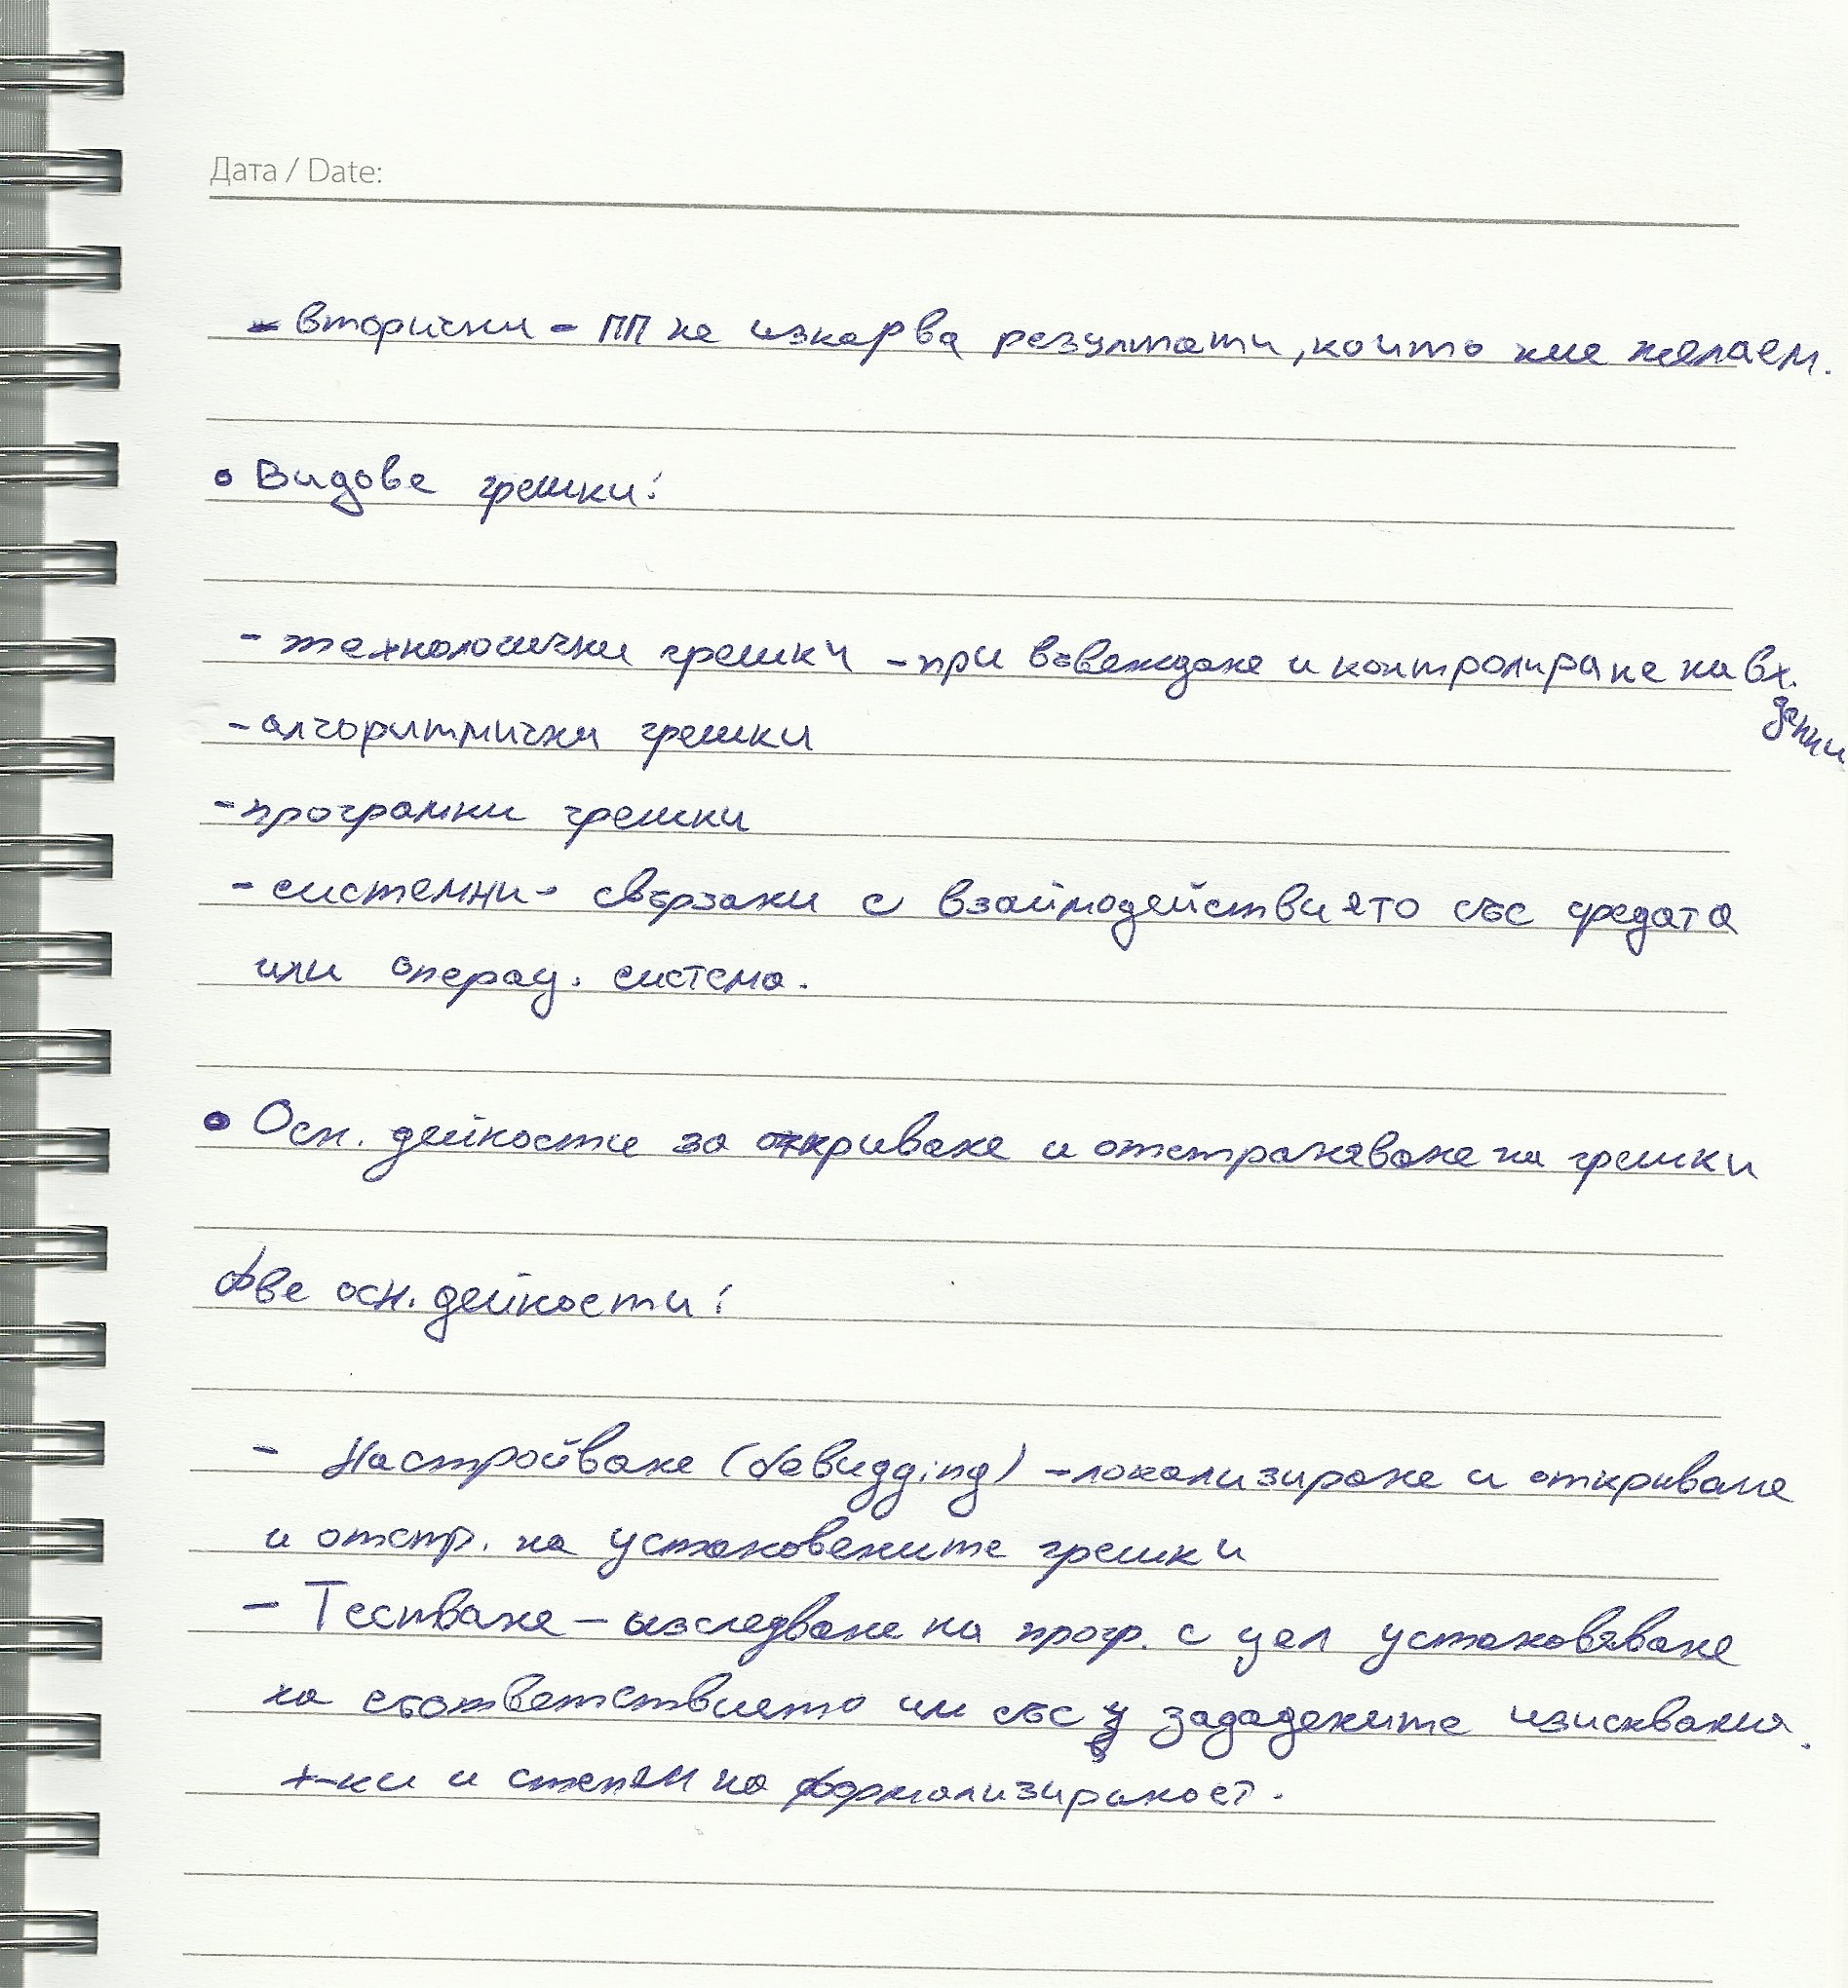 Дата / Date:
- вторични - ПП не изкарва резултати, които ние желаем.
• Видове грешки:
- технологични грешки - при въвеждане и контролиране на вх.
данни
- алгоритмични грешки
- програмни грешки
- системни - свързани с взаимодействието със средата
или операц. система.
• Осн. дейности за откриване и отстраняване на грешки
Две осн. дейности:
- Настройване (debugging) - локализиране и откриване
и отстр. на установените грешки
- Тестване - изследване на прогр. с цел установяване
на съответствието им със зададените изисквания.
х-ки и степен на формализираност.